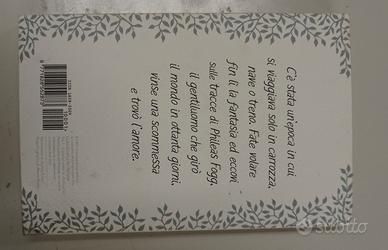 C'è stata un'epoca in cui
si viaggiava solo in carrozza,
nave o treno. Fate volare
fin lì la fantasia ed eccovi
sulle tracce di Phileas Fogg,
il gentiluomo che girò
il mondo in ottanta giorni,
vinse una scommessa
e trovò l'amore.
subito